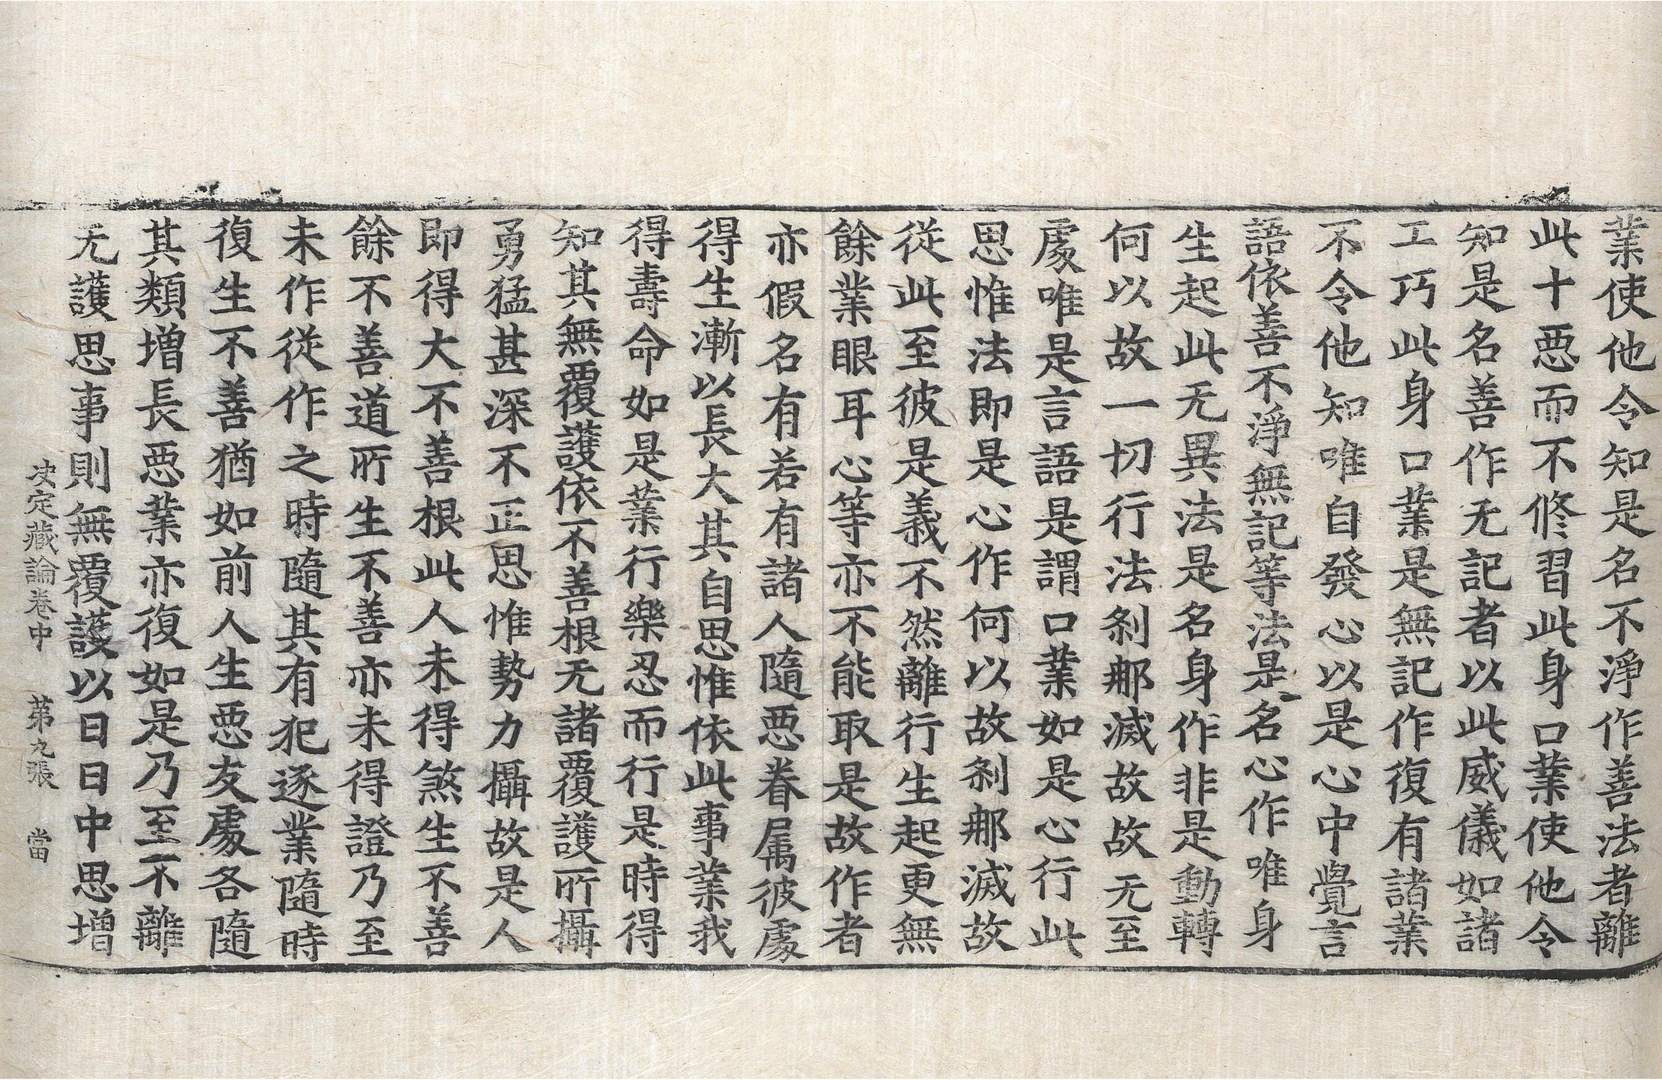 業使他令知是名不淨作善法者離
此十惡而不修習此身口業使他令
知是名善作无記者以此威儀如諸
工巧此身口業是無記作復有諸業
不令他知唯自發心以是心中覺言
語依善不淨無記等法是名心作唯身
生起此无異法是名身作非是動轉
何以故一切行法刹那滅故故无至
處唯是言語是謂口業如是心行此
思惟法即是心作何以故刹那滅故
從此至彼是義不然離行生起更無
餘業眼耳心等亦不能取是故作者
亦假名有若有諸人隨惡眷属彼處
得生漸以長大其自思惟依此事業我
得壽命如是業行樂忍而行是時得
知其無覆護依不善根无諸覆護所攝
勇猛甚深不正思惟勢力攝故是人
即得大不善根此人未得煞生不善
餘不善道所生不善亦未得證乃至
未作從作之時隨其有犯逐業隨時
復生不善猶如前人生惡友處各隨
其類增長惡業亦復如是乃至不離
无護思事則無覆護以日日中思增
决定藏論卷中 第九張 當